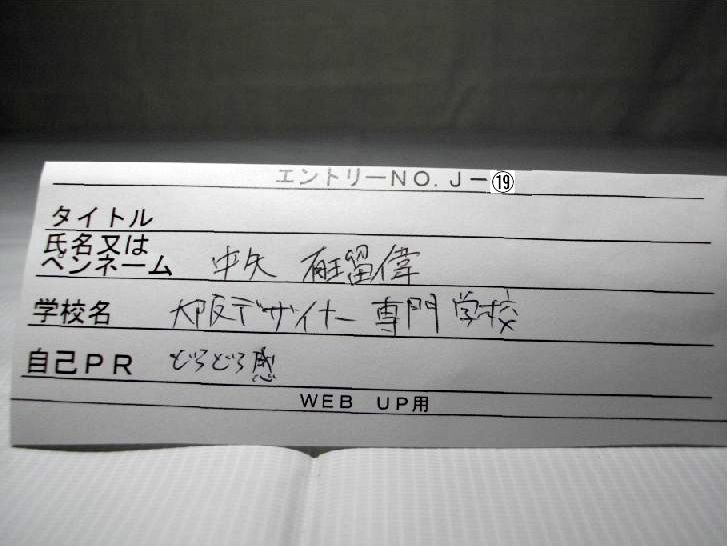 エントリーNO. J－⑲
タイトル
氏名又は
ペンネーム 中矢 留偉
学校名 大阪デザイナー専門学校
自己PR どろどろ感
WEB UP用